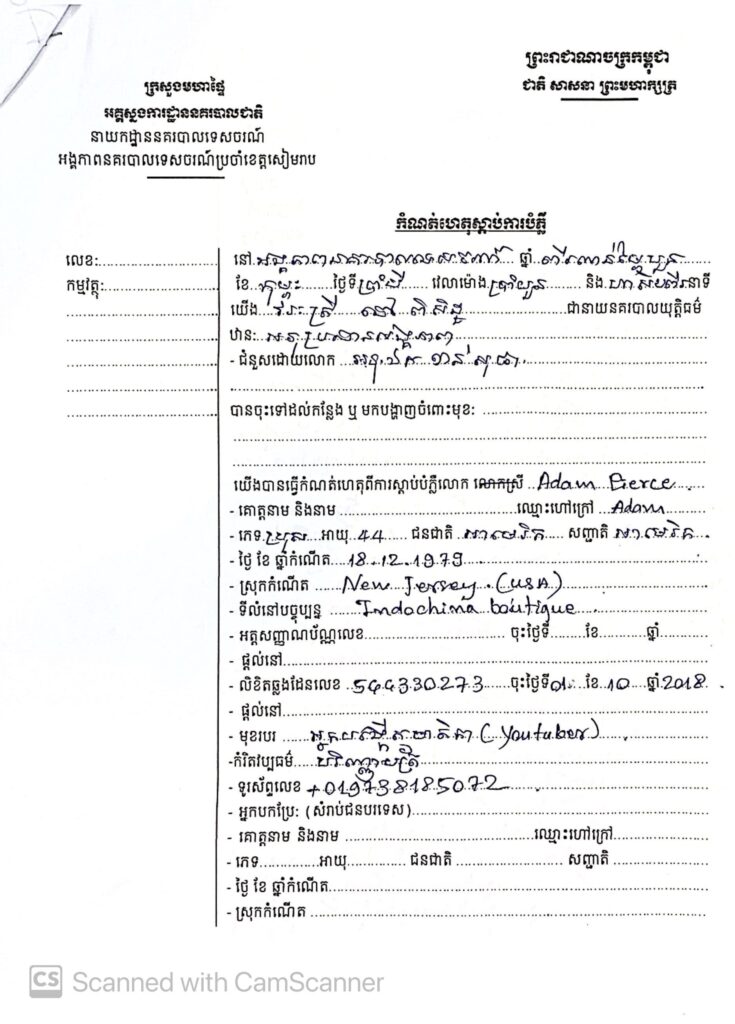 ព្រះរាជាណាចក្រកម្ពុជា
ជាតិ សាសនា ព្រះមហាក្សត្រ
ក្រសួងមហាផ្ទៃ
អគ្គស្នងការដ្ឋាននគរបាលជាតិ
នាយកដ្ឋាននគរបាលទេសចរណ៍
អង្គភាពនគរបាលទេសចរណ៍ប្រចាំខេត្តសៀមរាប
កំណត់ហេតុស្តាប់ការបំភ្លឺ
លេខ:
កម្មវត្ថុ:
នៅ អង្គភាពនគរបាលទេសចរណ៍ ឆ្នាំ
ខែ កុម្ភៈ ថ្ងៃទី ប្រាំបី វេលាម៉ោង ប្រាំបួន និង ហាសិបពីរ នាទី
យើង ជានាយនគរបាលយុត្តិធម៌
ឋានៈ អនុប្រធានអង្គភាព
- ជំនួសដោយលោក
បានចុះទៅដល់កន្លែង ឬ មកបង្ហាញចំពោះមុខ:
យើងបានធ្វើកំណត់ហេតុពីការស្តាប់បំភ្លឺលោក លោកស្រី Adam Pierce
- គោត្តនាម និងនាម ឈ្មោះហៅក្រៅ Adam
- ភេទ ប្រុស អាយុ 44 ជនជាតិ អាមេរិក សញ្ជាតិ អាមេរិក
- ថ្ងៃ ខែ ឆ្នាំកំណើត 18.12.1979
- ស្រុកកំណើត New Jersey (USA)
- ទីលំនៅបច្ចុប្បន្ន Indochina boutique
- អត្តសញ្ញាណប័ណ្ណលេខ ចុះថ្ងៃទី ខែ ឆ្នាំ
- ផ្តល់នៅ
- លិខិតឆ្លងដែនលេខ 544330273 ចុះថ្ងៃទី 01 ខែ 10 ឆ្នាំ 2018
- ផ្តល់នៅ
- មុខរបរ (Youtuber)
-កំរិតវប្បធម៌ បរិញ្ញាបត្រ
- ទូរស័ព្ទលេខ +019738185072
- អ្នកបកប្រែ: (សំរាប់ជនបរទេស)
- គោត្តនាម និងនាម ឈ្មោះហៅក្រៅ
- ភេទ អាយុ ជនជាតិ សញ្ជាតិ
- ថ្ងៃ ខែ ឆ្នាំកំណើត
- ស្រុកកំណើត
CS Scanned with CamScanner